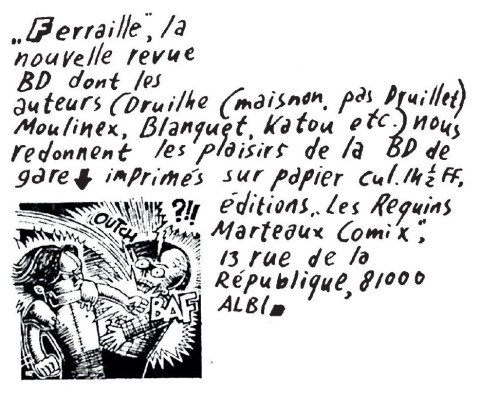 „Ferraille“, la
nouvelle revue
BD dont les
auteurs (Druilhe (maisnon, pas Druillet)
Moulinex, Blanquet, Katou etc.) nous
redonnent les plaisirs de la BD de
gare imprimés sur papier cul. 14 ½ FF,
éditions „Les Requins
Marteaux Comix“,
13 rue de la
République, 81000
ALBI.
OUTCH
?!!
BAF